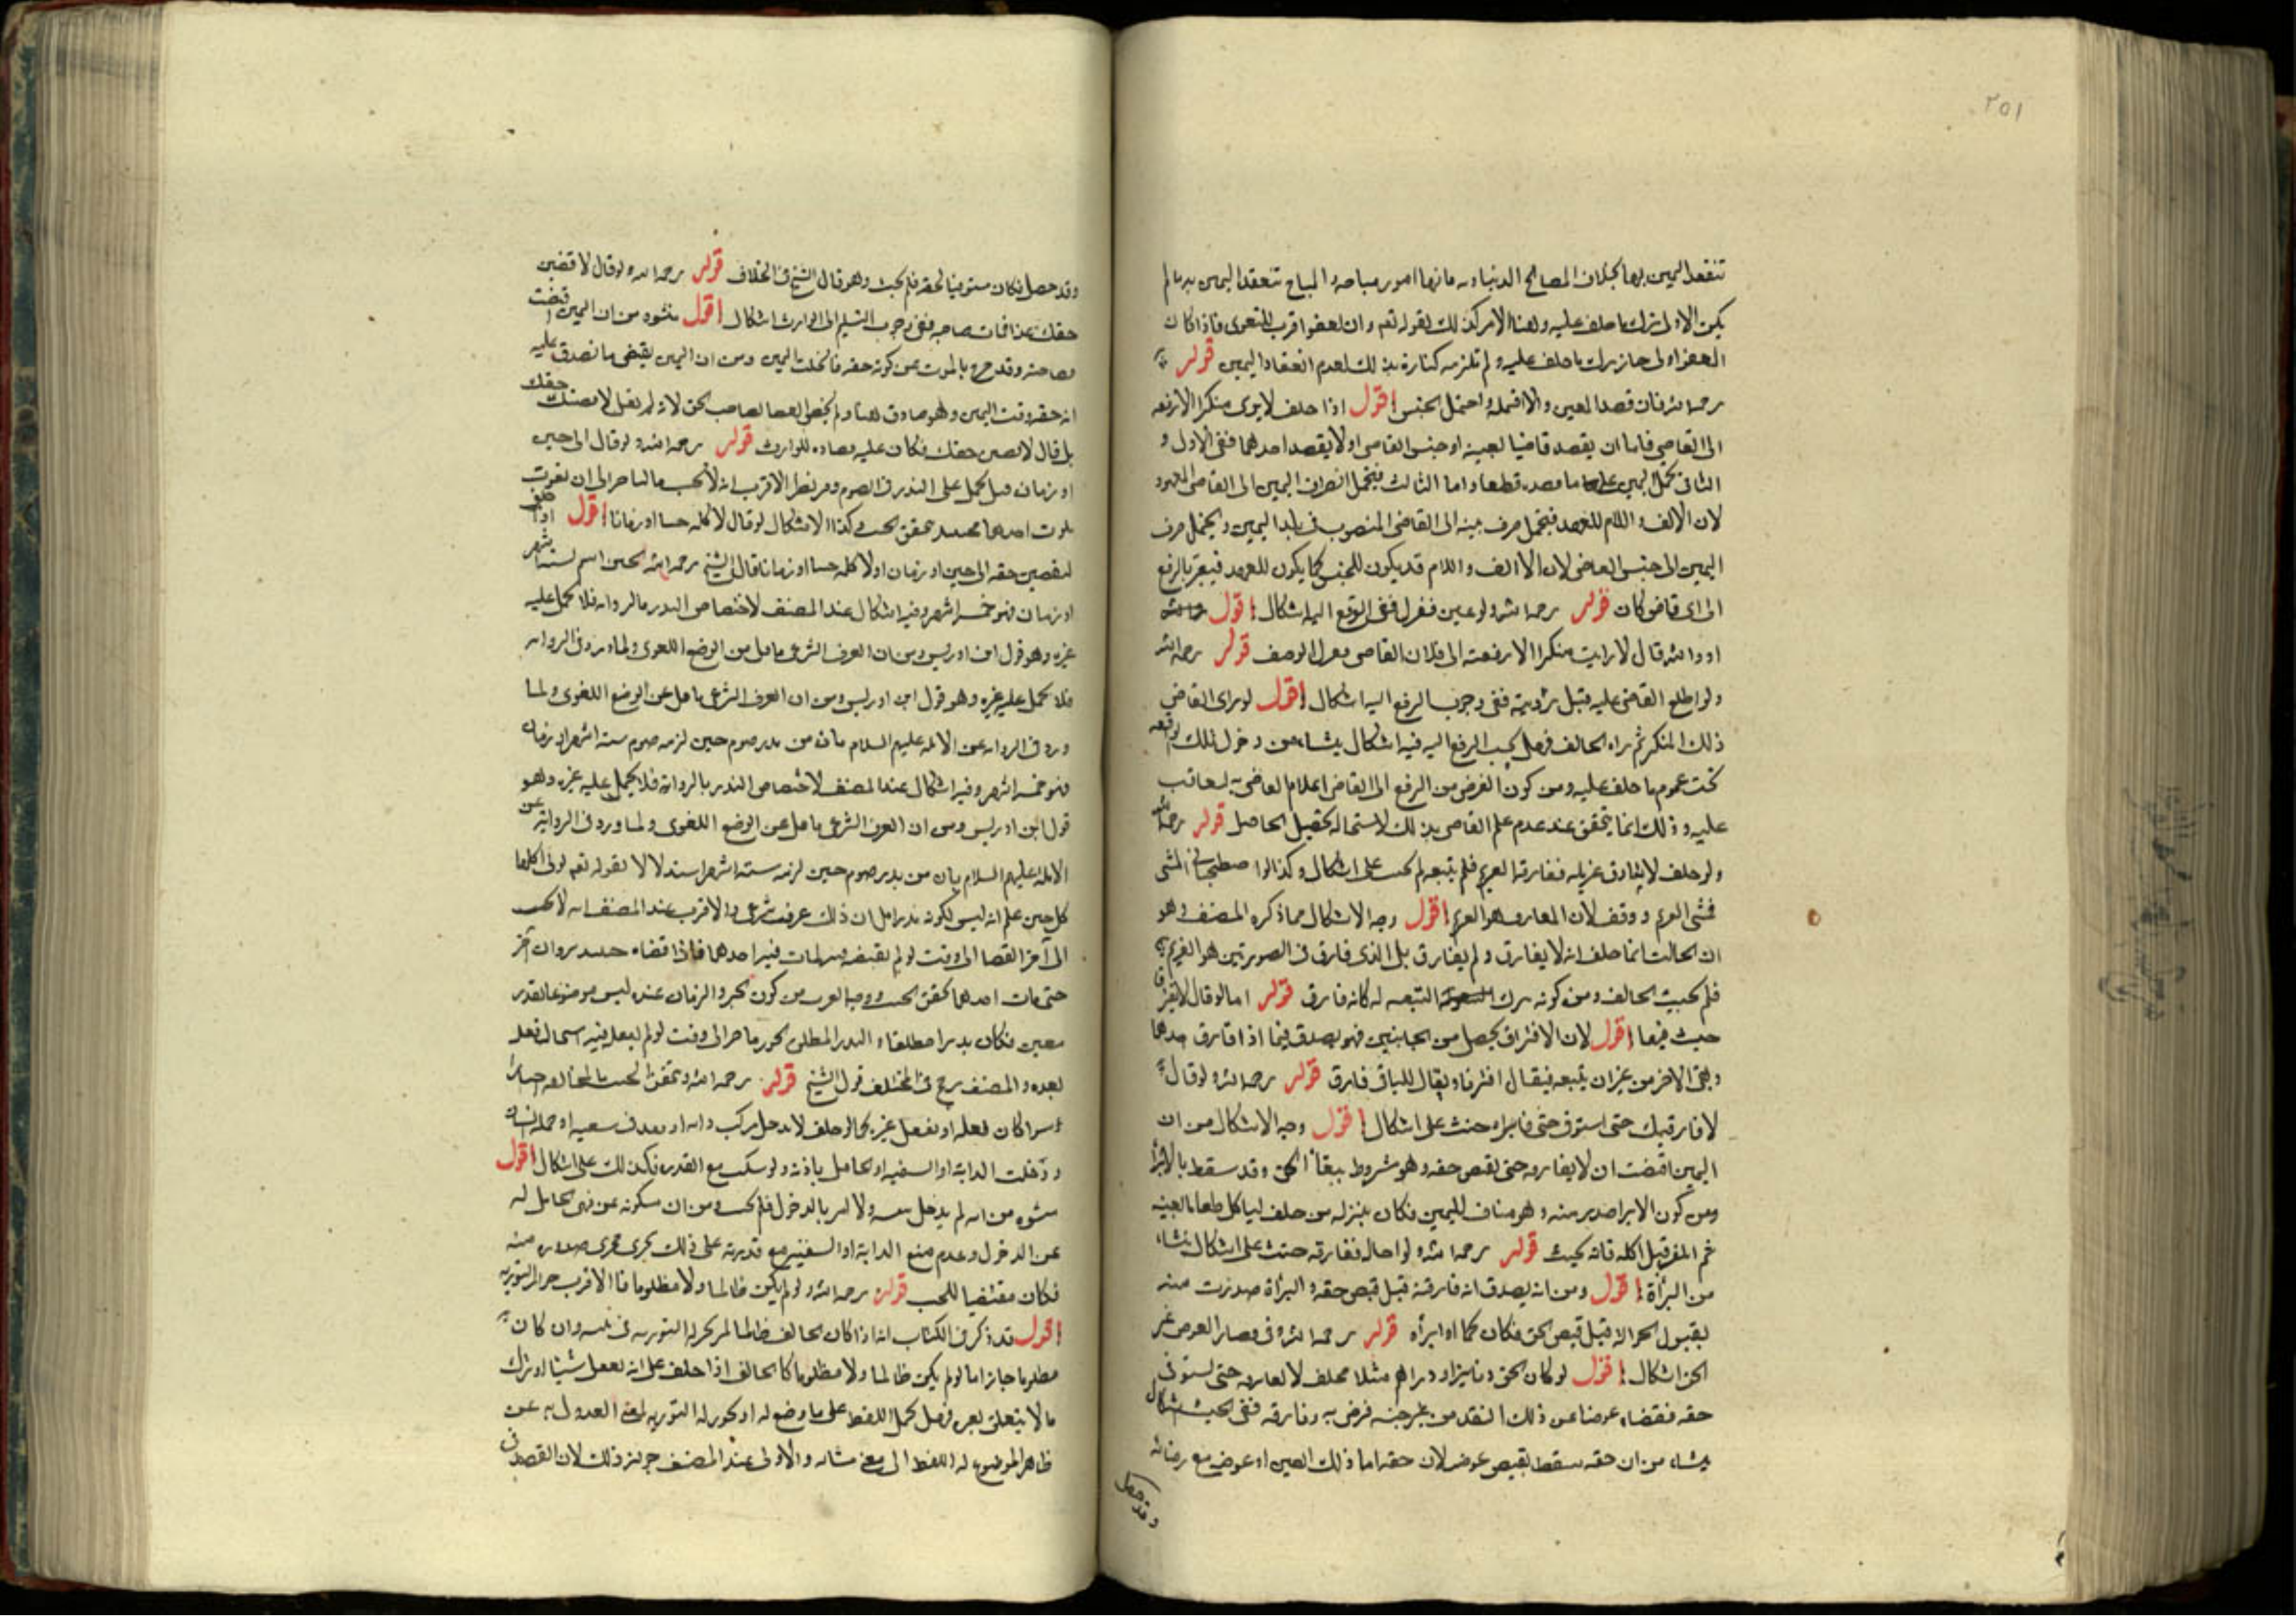 ٢٥١
تنعقد اليمين بها بخلاف المصالح الدنياوية فانها امور مباحة والمباح تنعقد اليمين به ما لم
يكن الاولى ترك ما حلف عليه وهنا الامر كذلك لقوله تعه وان تعفوا اقرب للتقوى فاذا كان
العفو اولى جاز ترك ما حلف عليه ولم تلزمه كفارة بذلك لعدم انعقاد اليمين قوله
رحمه الله فان قصد المعين والا احتمله واحتمل الجنس اقول اذا حلف لا يرى منكرا الا رفعه
الى القاضي فاما ان يقصد قاضيا بعينه او جنس القاضي او لا يقصد احدهما ففي الاول و
الثاني يحمل اليمين على ما قصده قطعا واما الثالث فيحتمل انصراف اليمين الى القاضي المعهود
لان الالف واللام للعهد فيحتمل صرف يمينه الى القاضي المنصوب في بلد اليمين ويحتمل صرف
اليمين الى جنس القاضي لان الالف واللام قد يكون للجنس كما يكون للعهد فيبر بالرفع
الى اي قاض كان قوله رحمه الله ولو عين فعزل ففي الرفع اليه اشكال اقول
اذا قال لا رايت منكرا الا رفعته الى فلان القاضي الوصف قوله رحمه الله
ولو اطلع القاضي عليه قبل رؤيته ففي وجوب الرفع اليه اشكال اقول لو راى القاضي
ذلك المنكر ثم راه الحالف فهل يجب الرفع اليه فيه اشكال ينشاء من دخول ذلك
تحت عموم ما حلف عليه ومن كون الغرض من الرفع الى القاضي اعلام القاضي به ليعاقب
عليه وذلك انما يتحقق عند عدم علم القاضي بذلك لاستحالة تحصيل الحاصل قوله رحمه الله
ولو حلف لا يفارق غريمه ففارقه الغريم فلم يتبعه لم يحنث على اشكال وكذا لو اصطحبا في المشي
فمشى الغريم ووقف لان المفارق هو الغريم اقول وجه الاشكال مما ذكره المصنف وهو
ان الحالف انما حلف انه لا يفارق ولم يفارق بل الذي فارق في الصورتين هو الغريم
فلم يحنث الحالف ومن كونه بترك التبعية له كانه فارق قوله اما لو قال لا نفترق
حنث فيهما اقول لان الافتراق يحصل من الجانبين فهو يصدق فيما اذا فارق احدهما
وبقى الاخر من غير ان يتبعه فيقال افترقا ويقال للباقي فارق قوله رحمه الله ولو قال
لا فارقتك حتى استوفي حقي فابراه حنث على اشكال اقول وجه الاشكال من ان
اليمين اقتضت ان لا يفارقه حتى يقبض حقه وهو مشروط ببقاء الحق وقد سقط بالابراء
ومن كون الابرا صدر منه وهو مناف لليمين فكان بمنزلة من حلف لياكل طعاما بعينه
ثم اتلفه قبل اكله فانه يحنث قوله رحمه الله ولو احاله ففارقه حنث على اشكال ينشاء
من البرأة اقول ومن انه يصدق انه فارقه قبل قبض حقه والبرأة صدرت منه
بقبول الحوالة قبل قبض الحق فكان كما لو ابرأه قوله رحمه الله وفي قضاء العوض عن
الحق اشكال اقول لو كان الحق دنانير او دراهم مثلا فحلف لا يفارقه حتى يستوفي
حقه فقضاه عوضا عن ذلك النقد من غير جنسه فرضى به وفارقه ففي الحنث اشكال
ينشاء من ان حقه سقط بقبض عوضه لان حقه اما ذلك العين او عوضه مع رضائه
وقد حصل
وقد حصل فكان مستوفيا لحقه فلم يحنث وهو قال الشيخ في الخلاف قوله رحمه الله ولو قال لاقضين
حقك غدا فمات صاحبه ففي وجوب التسليم الى الوارث اشكال اقول ينشوء من ان اليمين اقتضت
قضاء حقه وقد خرج بالموت عن كونه حقه فانحلت اليمين ومن ان اليمين يقتضي ما تصدق عليه
انه حقه وقت اليمين وهو صادق هنا ولم يختص القضا لصاحب الحق لانه لم يقل لاقضينك حقك
بل قال لاقضين حقك فكان عليه قضاءه للوارث قوله رحمه الله ولو قال الى حين
او زمان قيل يحمل على النذر في الصوم وفيه نظر الاقرب انه لا يحنث بالتاخير الى ان يفوت
بموت احدهما فحينئذ يتحقق الحنث وكذا الاشكال لو قال لا كلمه حينا او زمانا اقول اذا حلف
ليقضين حقه الى حين او زمان او لا كلمه حينا او زمانا قال الشيخ رحمه الله الحين اسم لستة اشهر
او زمان فهو خمسة اشهر وفيه اشكال عند المصنف لاختصاص النذر بالرواية فلا يحمل عليه
غيره وهو قول ابن ادريس ومن ان العرف الشرعي ناقل عن الوضع اللغوي ولما ورد في الرواية
فلا يحمل عليه غيره وهو قول ابن ادريس ومن ان العرف الشرعي ناقل عن الوضع اللغوي ولما
ورد في الرواية عن الائمة عليهم السلام بان من نذر صوم حين لزمه صوم ستة اشهر او زمان
فهو خمسة اشهر وفيه اشكال عند المصنف لاختصاص النذر بالرواية فلا يحمل عليه غيره وهو
قول ابن ادريس ومن ان العرف الشرعي ناقل عن الوضع اللغوي ولما ورد في الرواية عن
الائمة عليهم السلام بان من نذر صوم حين لزمه ستة اشهر استدلالا بقوله تعه تؤتى اكلها
كل حين علم انه ليس لكونه نذرا بل ان ذلك عرف شرعي والاقرب عند المصنف انه لا يحنث
الى آخر القضا الى وقت لو لم يقبضه فيه لمات فيه احدهما فاذا قضاه حينئذ بر وان آخر
حتى مات احدهما تحقق الحنث ووجه القرب من كون الحين والزمان عنده ليس موضوعا لقدر
معين فكان نذرا مطلقا والنذر المطلق يجوز تاخيره الى وقت لو لم يفعل فيه استحال فعله
بعده والمصنف رجح في المختلف قول الشيخ قوله رحمه الله ويتحقق الحنث بالمخالفة اختيارا
سواء كان بفعله او بفعل غيره كما لو حلف لا يدخل فركب دابة او قعد في سفينة او حمله انسان
ودخلت الدابة او السفينة او الحامل باذنه ولو سكت مع القدرة فكذلك على اشكال اقول
ينشوء من انه لم يدخل بنفسه ولا امر بالدخول فلم يحنث ومن ان سكوته عن نهى الحامل له
عن الدخول وعدم منع الدابة او السفينة مع قدرته على ذلك يجرى مجرى صدوره منه
فكان مقتضيا للحنث قوله رحمه الله ولو لم يكن ظالما ولا مظلوما فالاقرب جواز التورية
اقول قد ذكر في الكتاب انه اذا كان الحالف ظالما لم يجز له التورية في يمينه وان كان
مظلوما جاز اما لو لم يكن ظالما ولا مظلوما كالحالف اذا حلف على انه يفعل شيئا او ترك
ما لا يتعلق بغيره فهل يحمل اللفظ على ما وضع له او يجوز له التورية بمعنى العدول به عن
ظاهر الموضوع له اللفظ الى معنى مشابه والاولى عند المصنف جواز ذلك لان القصد في